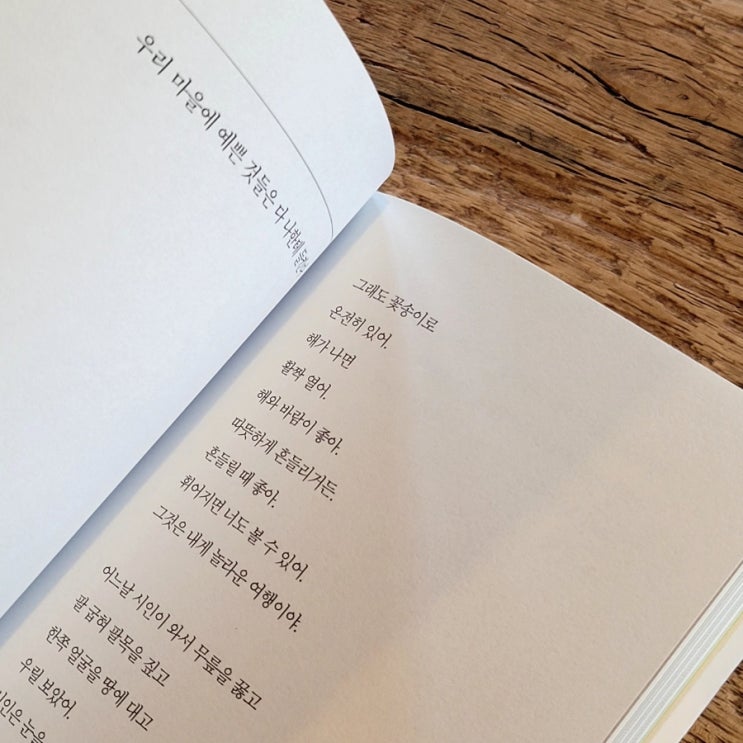 우리 마을에 예쁜 것들은 다 나한테
그래도 꽃송이로
온전히 있어.
해가 나면
활짝 열어.
해와 바람이 좋아.
따뜻하게 흔들리거든.
흔들릴 때 좋아.
휘어지면 너도 볼 수 있어.
그것은 내게 놀라운 여행이야.
어느날 시인이 와서 무릎을 꿇고
팔 굽혀 팔목을 짚고
한쪽 얼굴을 땅에 대고
우릴 보았어.
눈을